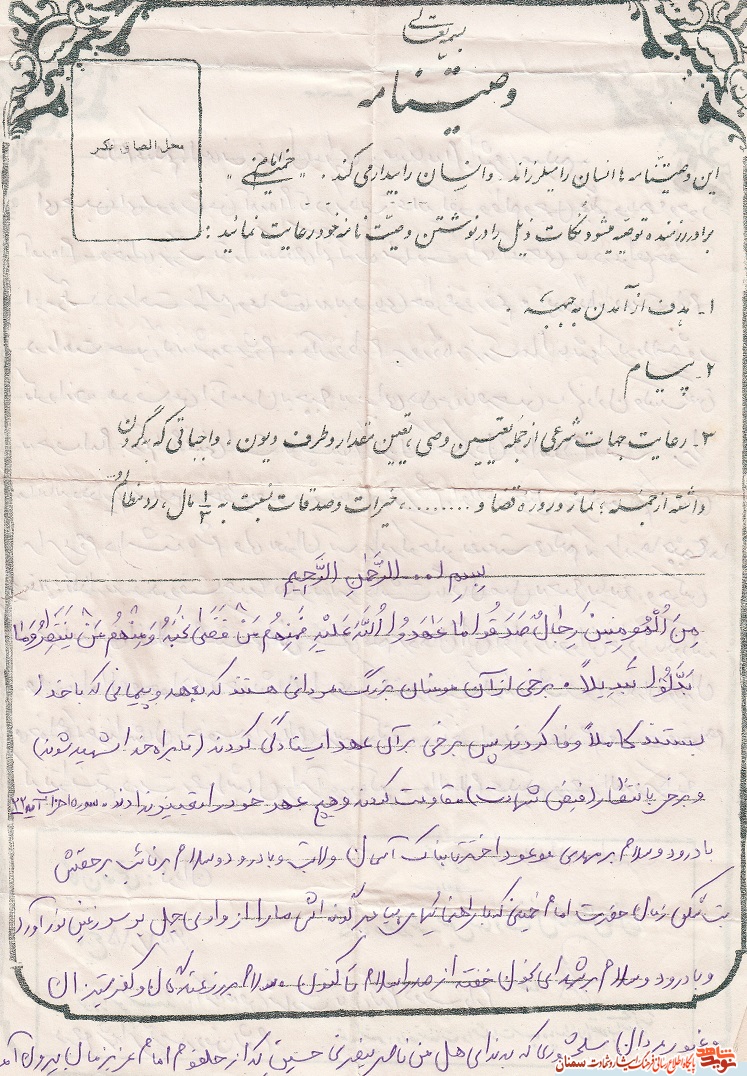 بسمه تعالی
وصیتنامه
محل الصاق عکس
این وصیتنامه ها انسان را میلرزاند و انسان را بیدار می کند. «امام خمینی»
برادر رزمنده توصیه میشود نکات ذیل را در نوشتن وصیت نامه خود رعایت نمائید:
۱- هدف از آمدن به جبهه.
۲- پیام
۳- رعایت جهات شرعی از جمله تعیین وصی، تعیین مقدار و طرف دیون، واجباتی که به گردن
داشته از جمله؛ نماز و روزه قضا و ........، خیرات و صدقات نسبت به ۱/۳ مال، رد مظالم و..
بسم ا... الرَّحمنِ الرَّحیمِ
مِنَ الْمُومِنینَ رِجالٌ صَدَقُوا ما عاهَدوُا اللّهَ عَلَیْهِ فَمِنْهُم مَنْ قَضی نَحْبَهُ وَمِنْهُم مَنْ یَنْتَظِرُ وَما
بَدَّلوُا تَبدیلاً. برخی از آن مومنان بزرگ مردانی هستند که بعهد و پیمانی که با خدا
بستند کاملاً وفا کردند پس برخی بر آن عهد ایستادگی کردند (تا براه خدا شهید شوند)
و برخی بانتظار (فیض شهادت) مقاومت کردند و هیچ عهد خود را تغییر ندادند. سوره احزاب آیه ۲۳
با درود و سلام بر مهدی موعود اختر تابناک آسمان ولایت و با درود و سلام بر نائب برحقش
بت شکن زمان حضرت امام خمینی که با راهنمائیهای پیامبر گونه اش ما را از وادی جهل بر سرزمین نور آورد
و با درود و سلام بر شهدای بخون خفته از صدر اسلام تا کنون و سلام بر رزمندگان و کفرستیزان
و غیور مردان سلحشوری که به ندای هل من ناصر ینصرنی حسین که از حلقوم امام عزیزمان بیرون آمد
نوید شاهد
پایگاه اطلاع رسانی فرهنگ ایثار و شهادت سمنان